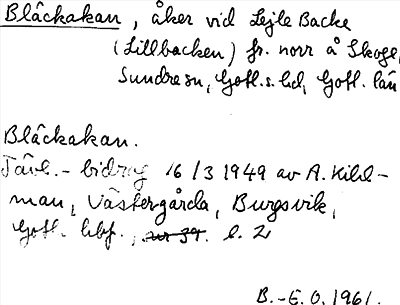 Bläckakan, åker vid Lejle Backe
(Lillbacken) fr. norr å Skoge,
Sundre sn, Gotl. s. hd, Gotl. län
Bläckakan.
Tävl.-bidrag 16/3 1949 av A. Kihl-
man, Västergårda, Burgsvik,
Gotl. hbf., l. 2
B.-E. O. 1961.